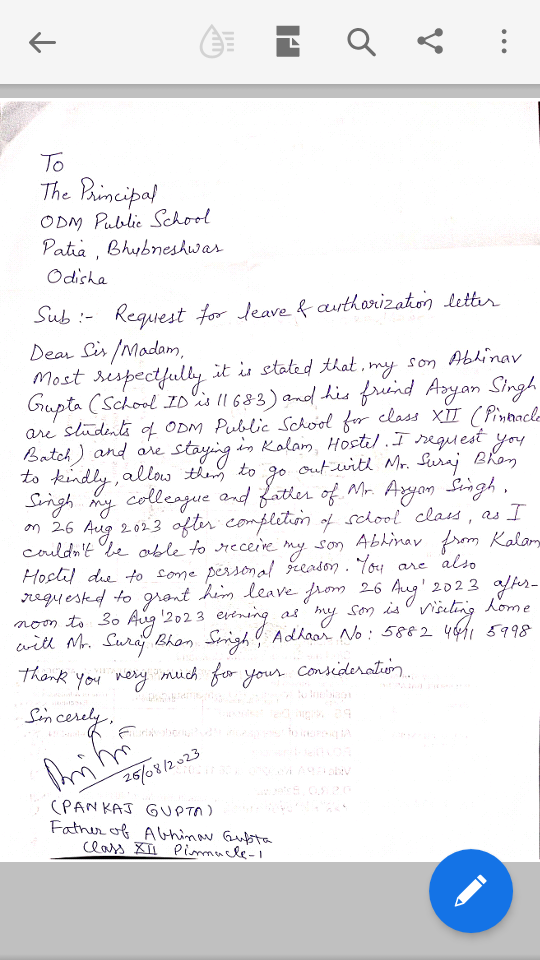 To
The Principal
ODM Public School
Patia, Bhubneshwar
Odisha
Sub :- Request for leave & autharization letter
Dear Sir/Madam,
Most respectfully it is stated that, my son Abhinav
Gupta (School ID is 11683) and his friend Aryan Singh
are students of ODM Public School for class XII (Pinnacle
Batch) and are staying in Kalam Hostel. I request you
to kindly, allow them to go out with Mr. Suraj Bhan
Singh my colleague and father of Mr. Aryan Singh,
on 26 Aug 2023 after completion of school class, as I
couldn't be able to receive my son Abhinav from Kalam
Hostel due to some personal reason. You are also
requested to grant him leave from 26 Aug' 2023 after-
noon to 30 Aug' 2023 evening as my son is visiting home
with Mr. Suraj Bhan Singh, Adhaar No: 5882 4411 5998
Thank you very much for your consideration.
Sincerely,
26/08/2023
(PANKAJ GUPTA)
Father of Abhinav Gupta
Class XII Pinnacle-1